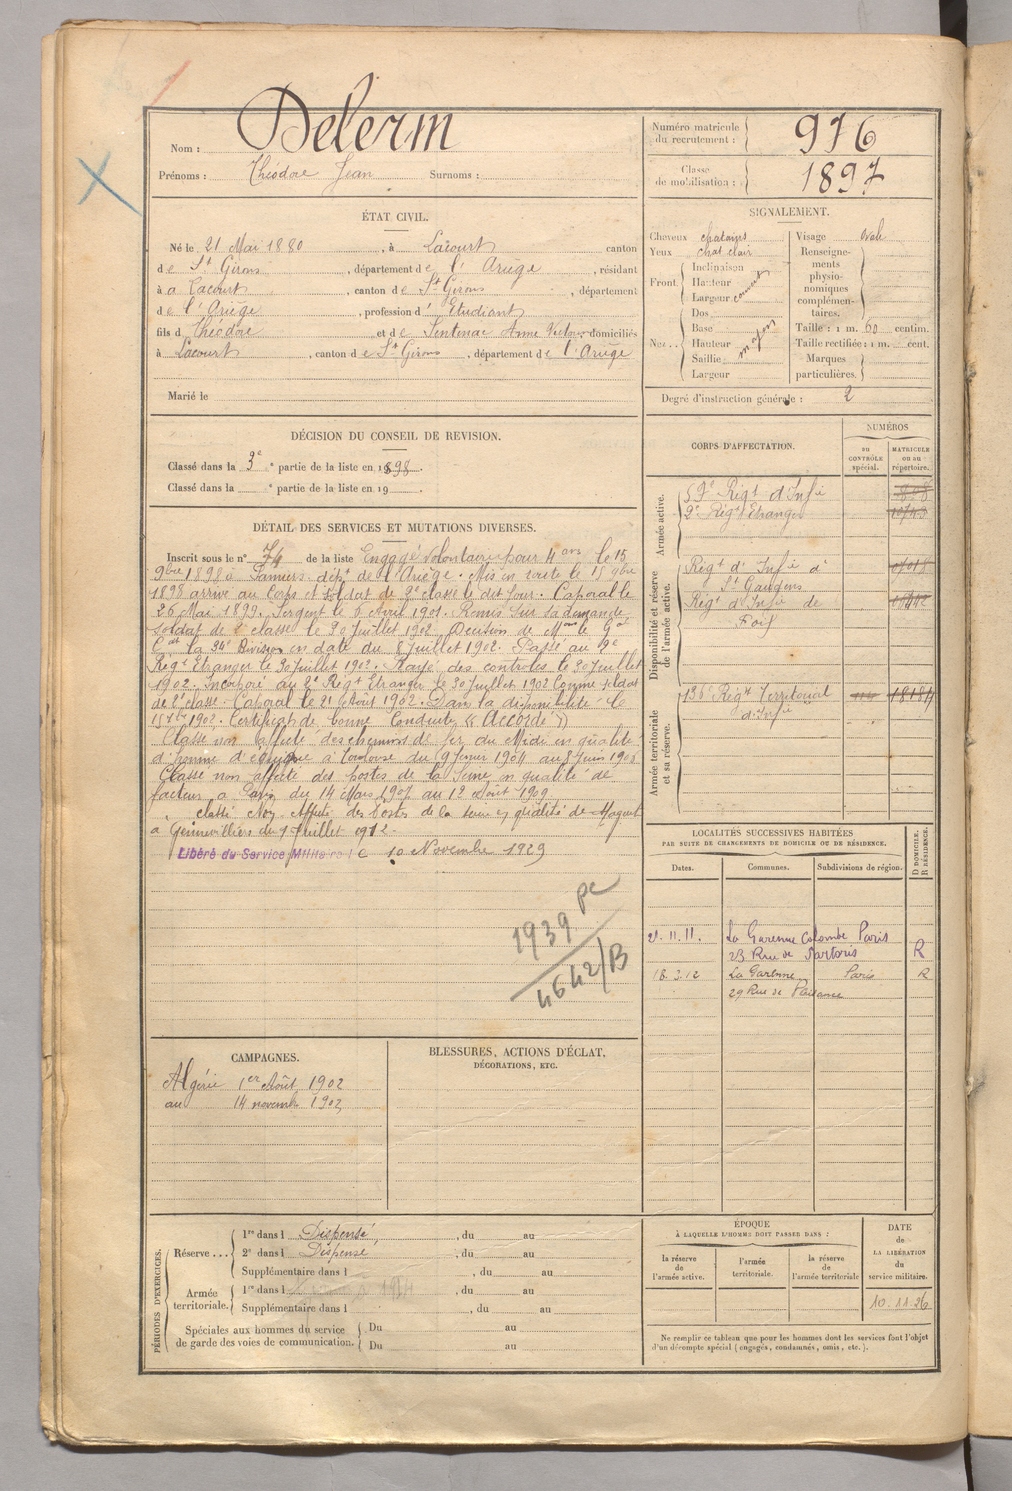 Nom : Delerm
Prénoms : Théodore Jean Surnoms :
Numéro matricule du recrutement : 976
Classe de mobilisation : 1897
ÉTAT CIVIL.
Né le 21 Mai 1880, à Lacourt canton
de St Girons, département de l'Ariège, résidant
à a Lacourt, canton de St Girons, département
de l'Ariège, profession d'Etudiant
fils de Théodore et de Sentenac Anne domiciliés
à Lacourt, canton de St Girons, département de l'Ariège
Marié le
SIGNALEMENT.
Cheveux chatains
Yeux chat clair
Front
Inclinaison
Hauteur
Largeur
Nez
Dos
Base
Hauteur
Saillie
Largeur
moyen
Visage ovale
Renseignements physionomiques complémentaires.
Taille : 1 m. 60 centim.
Taille rectifiée : 1 m. cent.
Marques particulières.
Degré d'instruction générale : 2
DÉCISION DU CONSEIL DE REVISION.
Classé dans la 3e partie de la liste en 1898.
Classé dans la e partie de la liste en 19
DÉTAIL DES SERVICES ET MUTATIONS DIVERSES.
Inscrit sous le n° 74 de la liste Engagé volontaire pour 4 ans le 15
9bre 1898 à Pamiers dépt de l'Ariège. Mis en route le 15 9bre
1898 arrivé au Corps et soldat de 2e classe le dit jour. Caporal le
26 Mai 1899. Sergent le 6 Avril 1901. Remis sur sa demande
soldat de 2e classe le 30 Juillet 1902. Décision de Mr le Gal
Cdt la 34e Division en date du 8 Juillet 1902. Passé au 2e
Régt Etranger le 30 Juillet 1902. Rayé des contrôles le 30 Juillet
1902. Incorporé au 2e Régt Etranger le 30 Juillet 1902 Comme soldat
de 2e classe. Caporal le 21 Août 1902. Dans la disponibilité le
15 9bre 1902. Certificat de bonne Conduite « Accordé »
Classé non affecté des chemins de fer du Midi en qualité
d'homme d'équipe à Toulouse du 9 février 1904 au 8 Juin 1905
Classé non affecté des postes de la Seine en qualité de
facteur à Paris du 14 Mars 1907 au 12 Août 1909
classé Non Affecté des Postes de la Seine en qualité de
à Gennevilliers du 1 Juillet 1912.
Libéré du Service Militaire le 10 Novembre 1929
1939 pc
4642/B
CORPS D'AFFECTATION.
NUMÉROS
au CONTRÔLE spécial.
MATRICULE ou au répertoire.
Armée active.
59e Régt d'Infie
2e Régt Etranger
Disponibilité et réserve de l'armée active.
Régt d'Infie de
St Gaudens
Régt d'Infie de
Foix
Armée territoriale et sa réserve.
136e Régt Territorial
d'Infie
LOCALITÉS SUCCESSIVES HABITÉES
PAR SUITE DE CHANGEMENTS DE DOMICILE OU DE RÉSIDENCE.
Dates. Communes. Subdivisions de région. D DOMICILE. R RÉSIDENCE.
21.11.11. La Garenne Colombe Paris
23 Rue de Sartoris R
18.3.12 La Garenne Paris R
29 Rue de Plaisance
CAMPAGNES.
Algérie 1er Août 1902
au 14 novembre 1902
BLESSURES, ACTIONS D'ÉCLAT,
DÉCORATIONS, ETC.
PÉRIODES D'EXERCICES.
Réserve ...
1re dans l Dispensé, du au
2e dans l Dispensé, du au
Supplémentaire dans l, du au
Armée territoriale.
1re dans l, du au
Supplémentaire dans l, du au
Spéciales aux hommes du service
de garde des voies de communication.
Du au
Du au
ÉPOQUE
À LAQUELLE L'HOMME DOIT PASSER DANS :
la réserve de l'armée active.
l'armée territoriale.
la réserve de l'armée territoriale
DATE de LA LIBÉRATION du service militaire.
10.11.26
Ne remplir ce tableau que pour les hommes dont les services font l'objet
d'un décompte spécial (engagés, condamnés, omis, etc.).